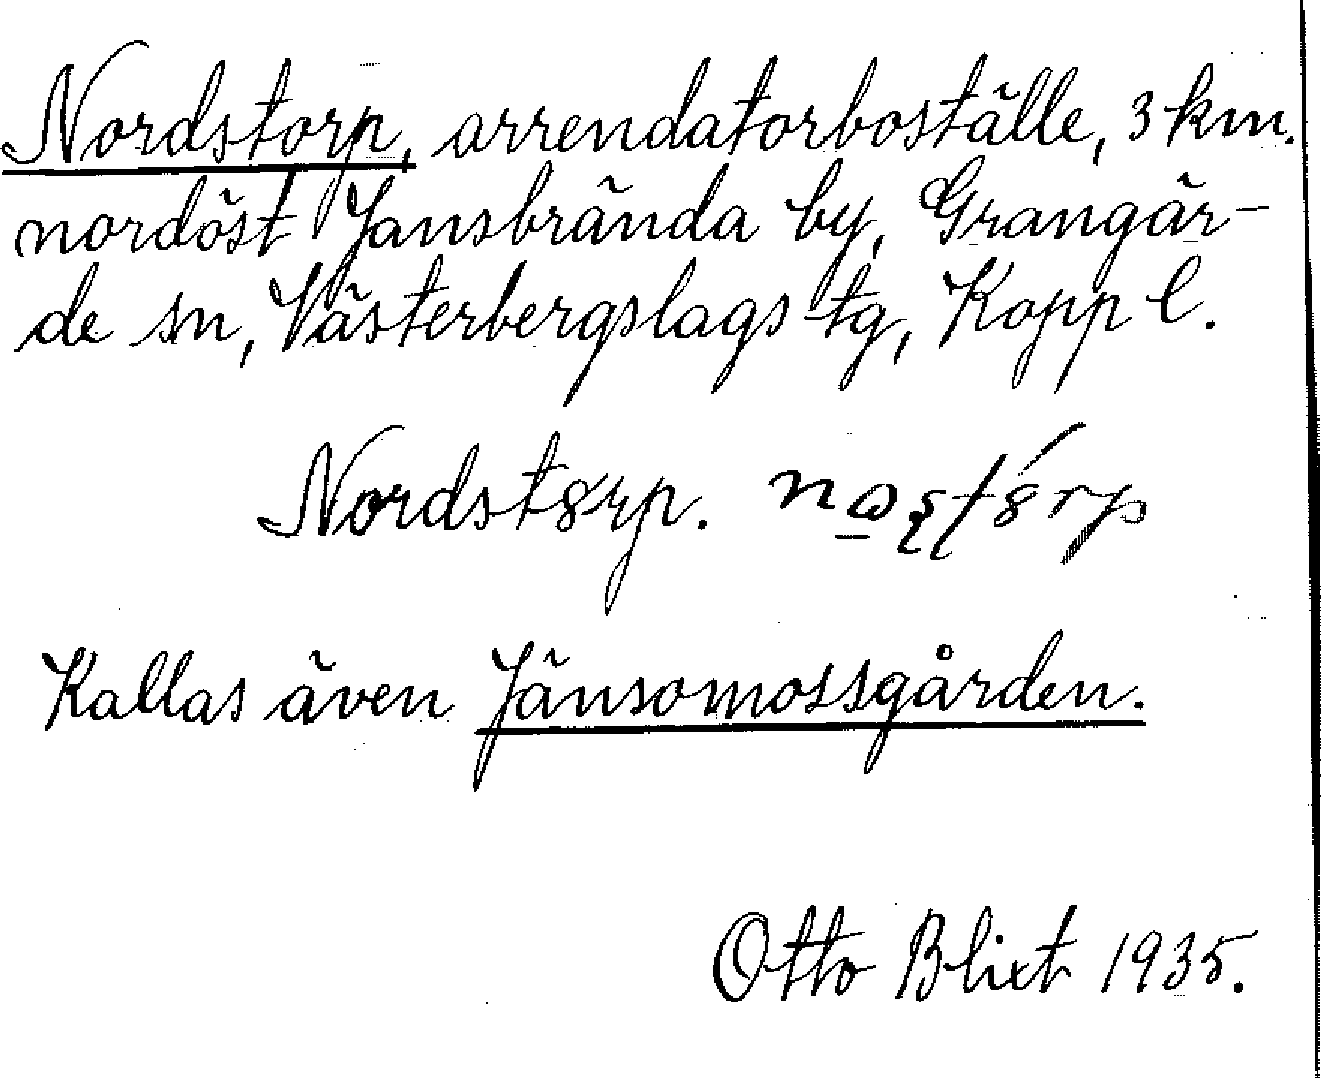 Nordstorp, arrendatorboställe, 3 km.
nordöst Jansbrända by, Grangär-
de sn, Västerbergslags tg, Kopp l.
Nordst8rp.
Kallas även Jänsomossgården.
Otto Blixt 1935.